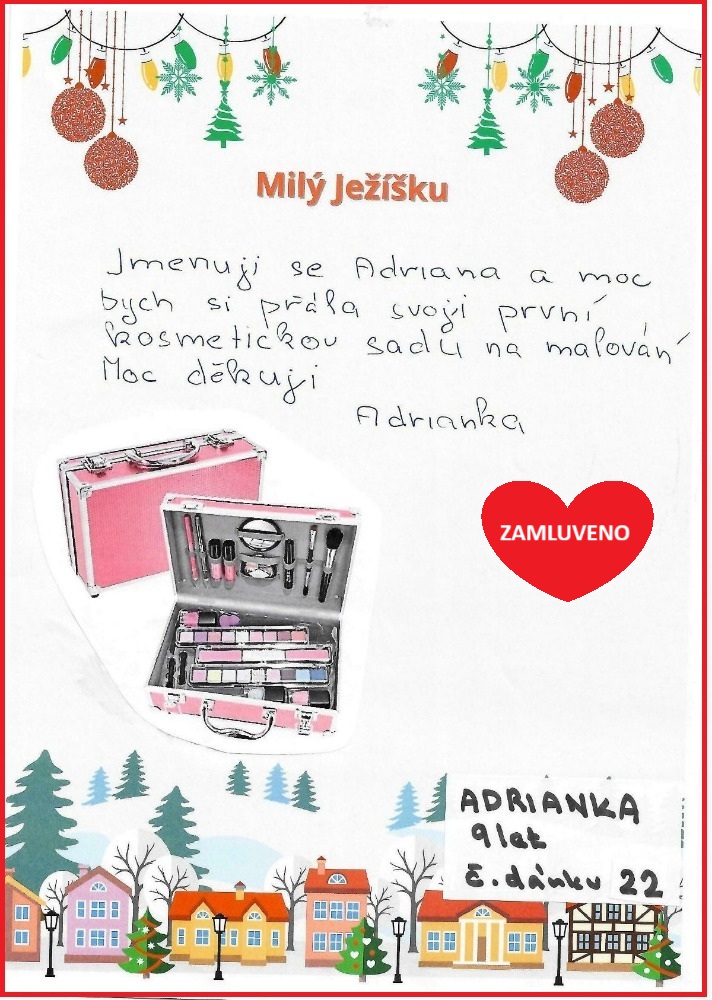 Milý Ježíšku
Jmenuji se Adriana a moc
bych si přála svoji první
kosmetickou sadu na malování
Moc děkuji
Adrianka
ZAMLUVENO
ADRIANKA
9 let
č. dárku 22